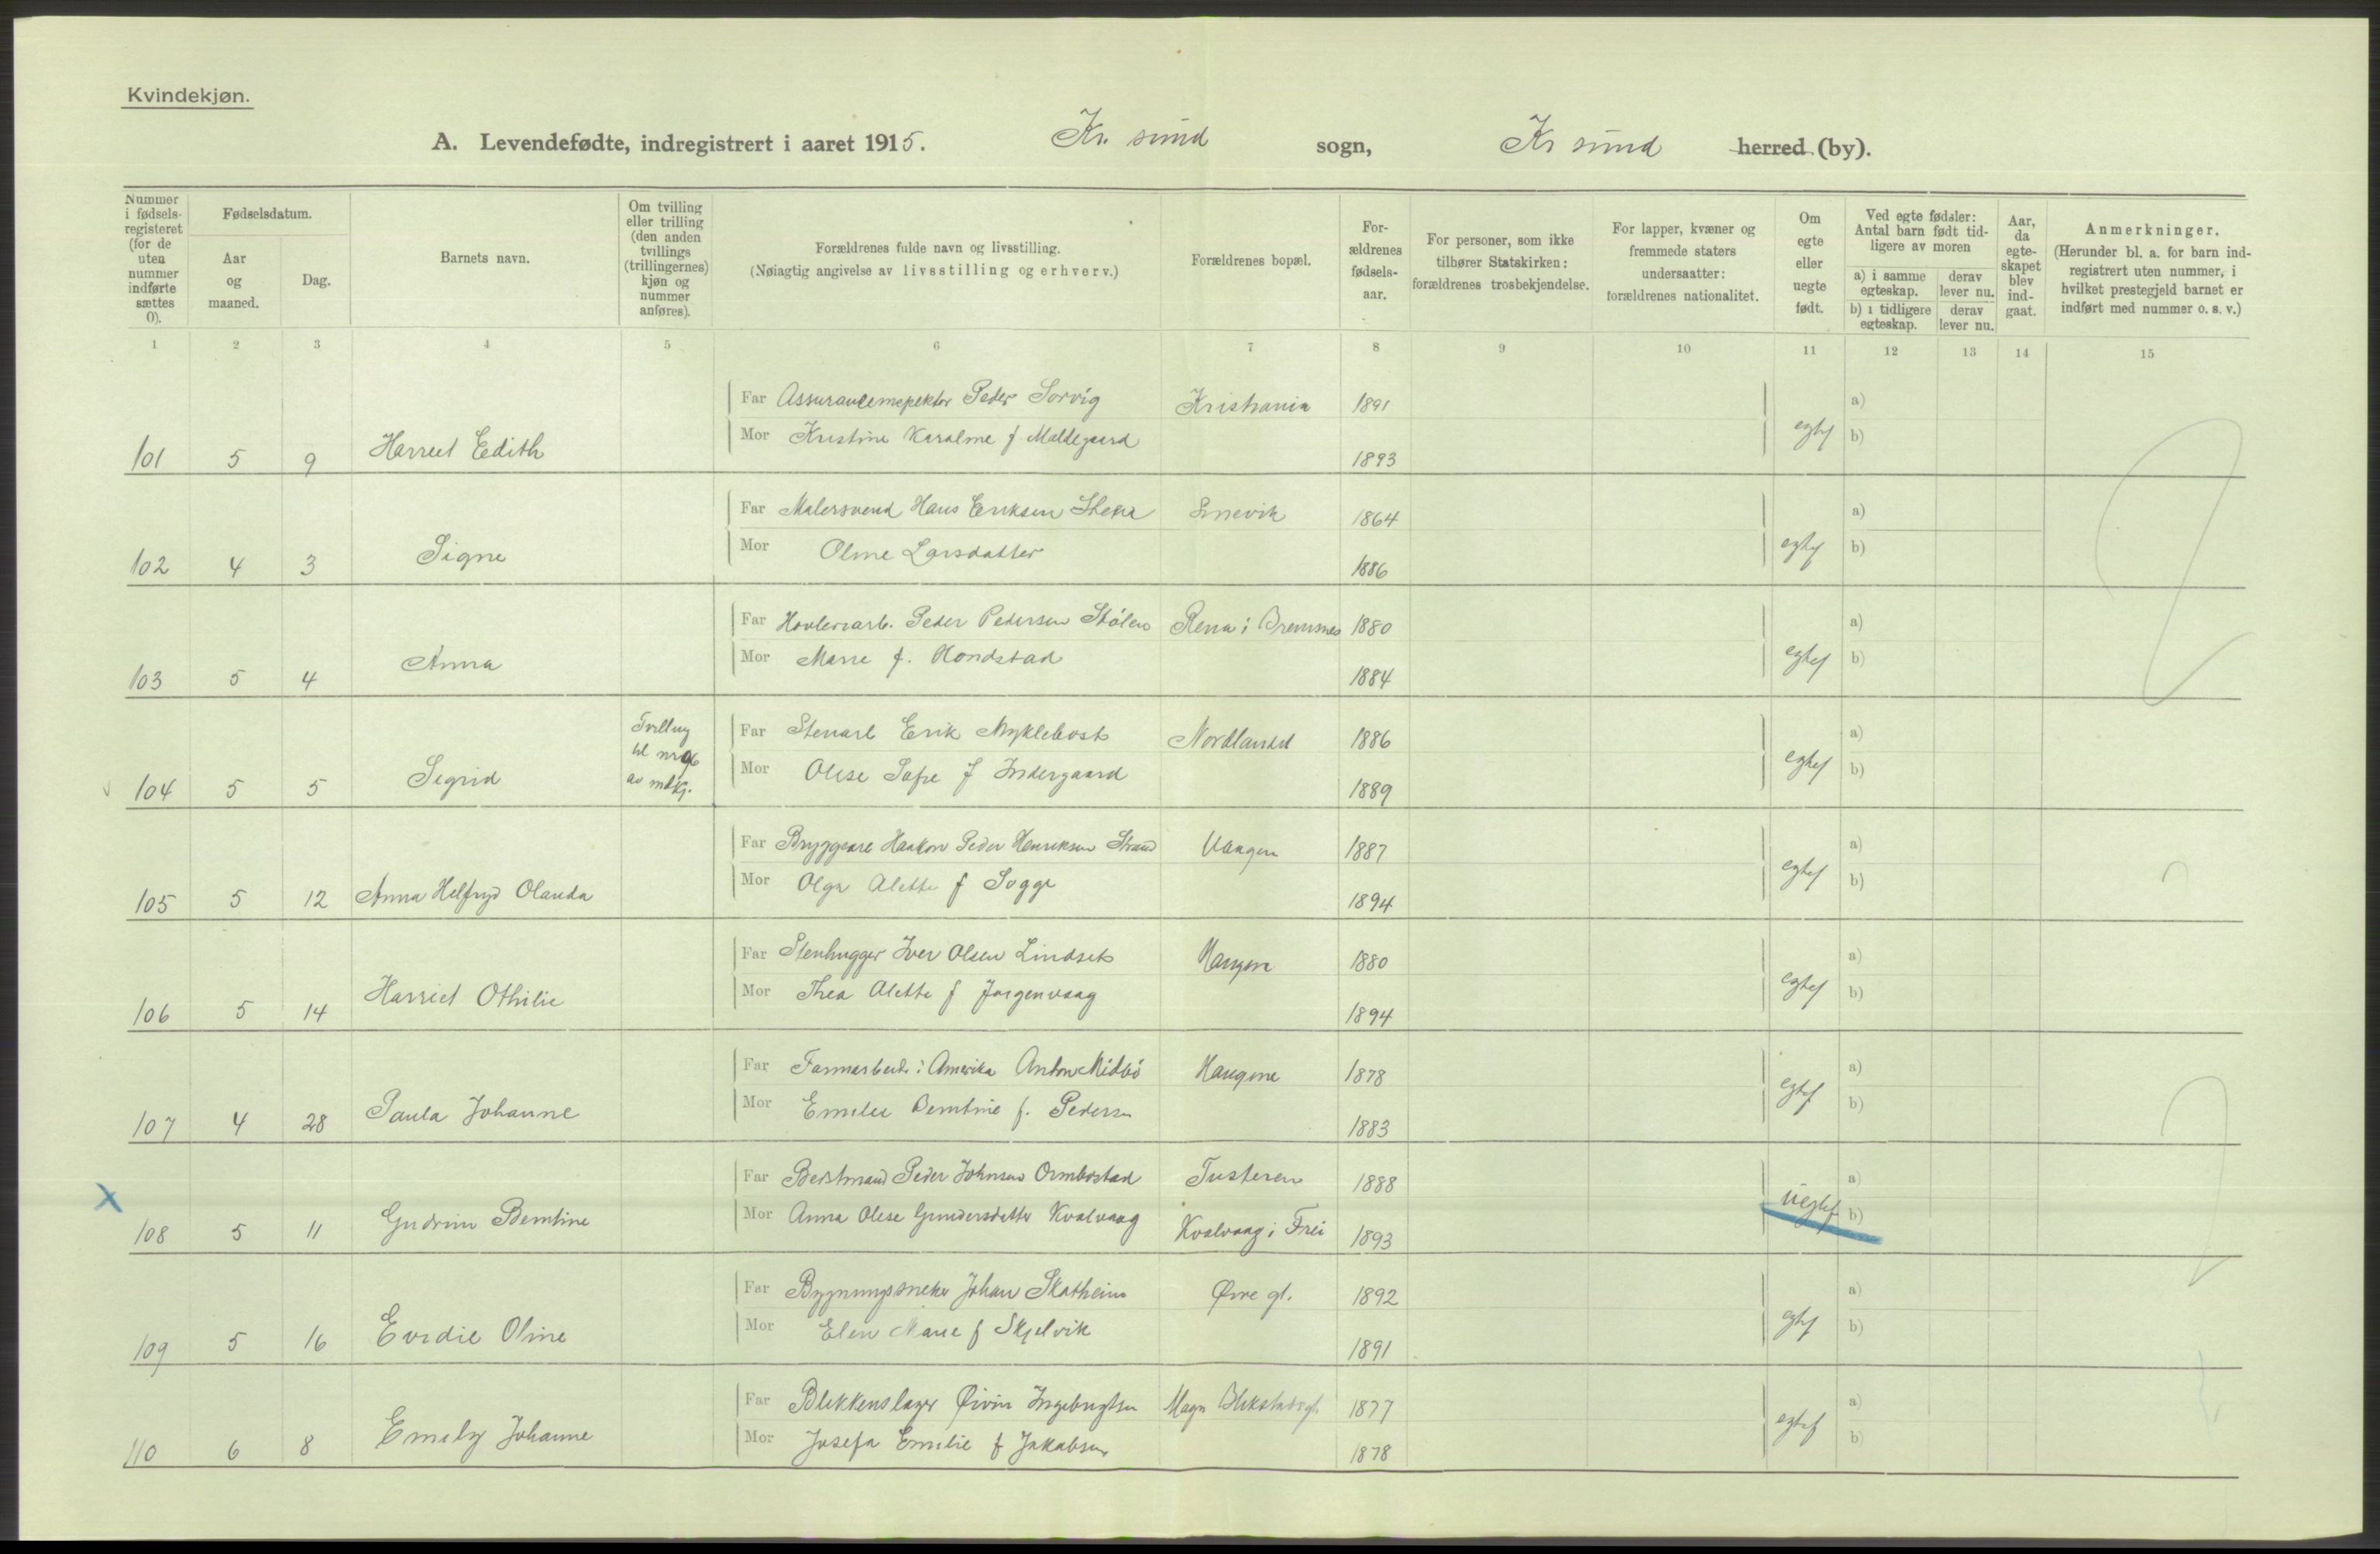 Kvindekjøn.
A. Levendefødte, indregistrert i aaret 1915. Kr. sund sogn, Kr sund herred (by).
Nummer i fødselsregisteret (for de uten nummer indførte sættes 0).
Fødselsdatum.
Aar og maaned.
Dag.
Barnets navn.
Om tvilling eller trilling (den anden tvillings (trillingernes) kjøn og nummer anføres).
Forældrenes fulde navn og livsstilling.
(Nøiagtig angivelse av livsstilling og erhverv.)
Forældrenes bopæl.
Forældrenes fødselsaar.
For personer, som ikke tilhører Statskirken: forældrenes trosbekjendelse.
For lapper, kvæner og fremmede staters undersaatter: forældrenes nationalitet.
Om egte eller uegte født.
Ved egte fødsler: Antal barn født tidligere av moren
a) i samme egteskap. derav lever nu.
b) i tidligere egteskap. derav lever nu.
Aar, da egteskapet blev indgaat.
Anmerkninger.
(Herunder bl. a. for barn indregistrert uten nummer, i hvilket prestegjeld barnet er indført med nummer o. s. v.)
1 2 3 4 5 6 7 8 9 10 11 12 13 14 15
Far Assuranceinspektør Peder Sorvig Kristiania 1891 a)
101 5 9 Harriet Edith Mor Kristine Karoline f. Maldegaard 1893 egtef b)
Far Malersvend Hans Eriksen 1864 a)
102 4 3 Signe Mor Oline Larsdatter 1886 egtef b)
Far Peder Pedersen Stølen i Bremsnes 1880 a)
103 5 4 Anna Mor Marie f. Hondstad 1884 egtef b)
Far Stenarb Erik Myklebost Nordlandet 1886 a)
104 5 5 Sigrid Tvilling til nr 96 av mdkj. Mor Olise Sofie f Indergaard 1889 egtef b)
Far Haakon Peder Henriksen Strand Vaagen 1887 a)
105 5 12 Anna Helfryd Olauda Mor Olga Alette f Sogge 1894 egtef b)
Far Stenhugger Iver Olsen Lindset Haugen 1880 a)
106 5 14 Harriet Othilie Mor Thea Alette f Jørgenvaag 1894 egtef b)
Far Farmarbeid. i Amerika Anton Midbö Haugene 1878 a)
107 4 28 Paula Johanne Mor Emilie Berntine f. Pedersen 1883 egtef b)
Far Bestmand Peder Johnsen Ormbostad Tusteren 1888 a)
108 5 11 Gudrun Berntine Mor Anna Olese Gundersdatter Kvalvaag Kvalvaag i Frei 1893 uegtef b)
Far Bygningssneker Johan Skatheim Øvre gt. 1892 a)
109 5 16 Evidie Oline Mor Elen Marie f Skjelvik 1891 egtef b)
Far Blikkenslager Øivin Ingebrigtsen 1877 a)
110 6 8 Emily Johanne Mor Josefa Emilie f Jakobsen 1878 egtef b)